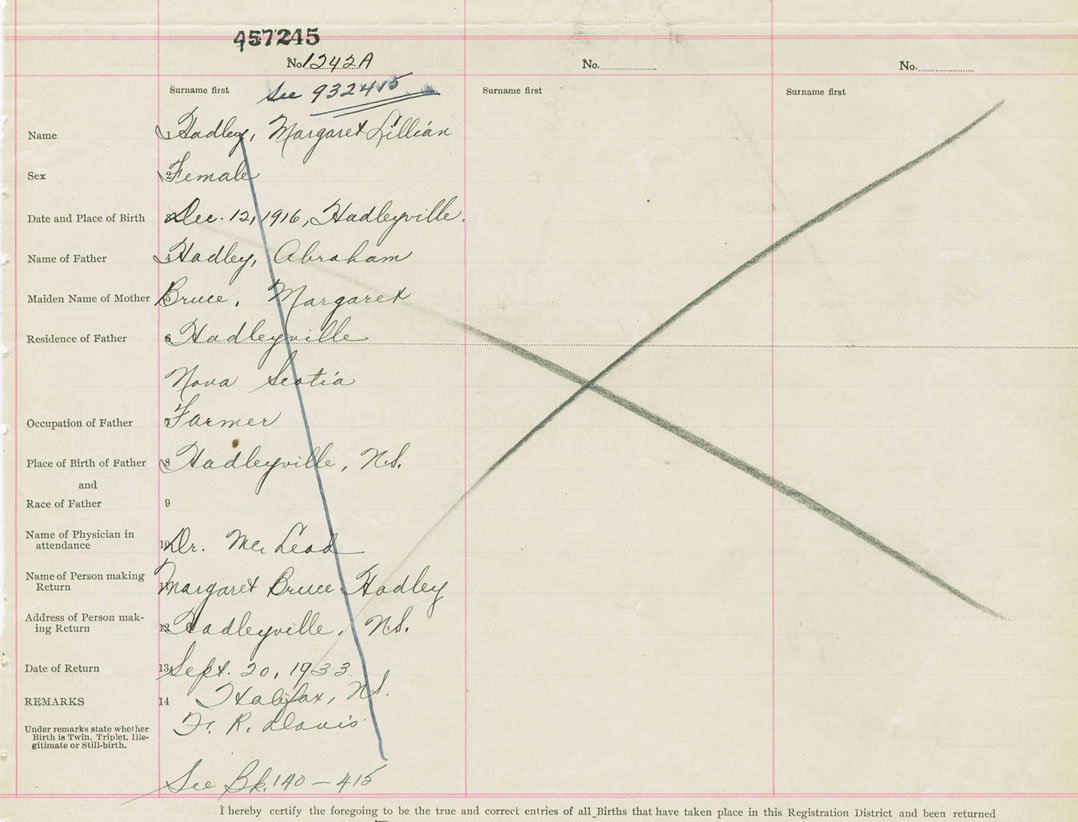 457245
No 1242A No. No.
See 932415
Surname first Surname first Surname first
Name 1 Hadley, Margaret Lillian
Sex 2 Female
Date and Place of Birth Dec. 12, 1916, Hadleyville.
Name of Father 4 Hadley, Abraham
Maiden Name of Mother 5 Bruce, Margaret
Residence of Father 6 Hadleyville
Nova Scotia
Occupation of Father 7 Farmer
Place of Birth of Father 8 Hadleyville, N.S.
and
Race of Father 9
Name of Physician in
attendance 10 Dr. McLeod
Name of Person making
Return Margaret Bruce Hadley
Address of Person mak-
ing Return 12 Hadleyville, N.S.
Date of Return 13 Sept. 20, 1933
REMARKS 14 Halifax, N.S.
Under remarks state whether
Birth is Twin, Triplet, Ille-
gitimate or Still-birth.
F. R. Davis
See Bk. 140 — 415
I hereby certify the foregoing to be the true and correct entries of all Births that have taken place in this Registration District and been returned